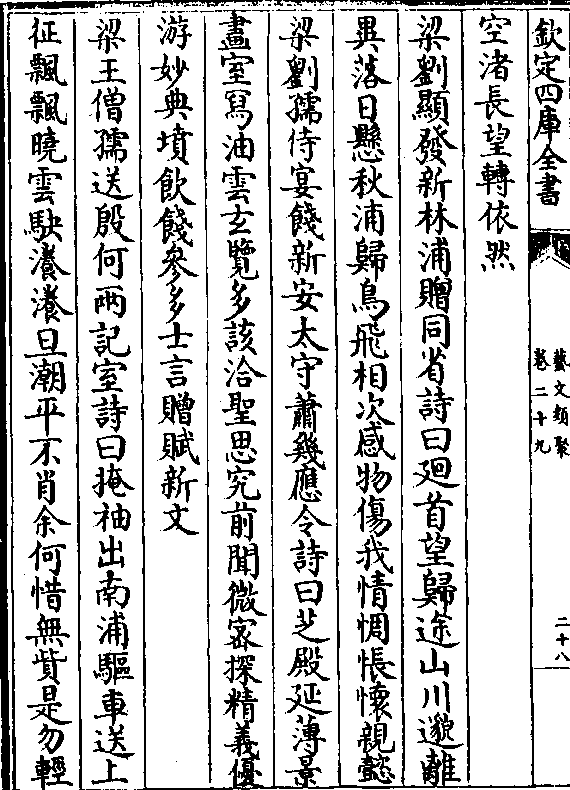 欽定四庫全書
藝文類聚
卷二十九
二十八
空渚長望轉依然
梁劉顯發新林浦贈同省詩曰廻首望歸途山川邈離
異落日懸秋浦歸鳥飛相次感物傷我情惆悵懷親懿
梁劉孺侍宴餞新安太守蕭幾應令詩曰芝殿延薄景
畫室寫油雲玄覽多該洽聖思究前聞微宻探精義優
游妙典墳飲餞參多士言贈賦新文
梁王僧孺送殷何兩記室詩曰掩袖出南浦驅車送上
征飄飄曉雲駃瀁瀁旦潮平不肖余何惜無貲是勿輕